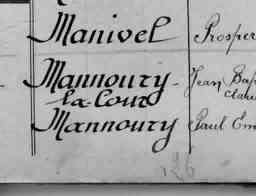 Manivel Prosper
Mannoury- Jean Bap
la-Cour Clair
Mannoury Paul Em
126